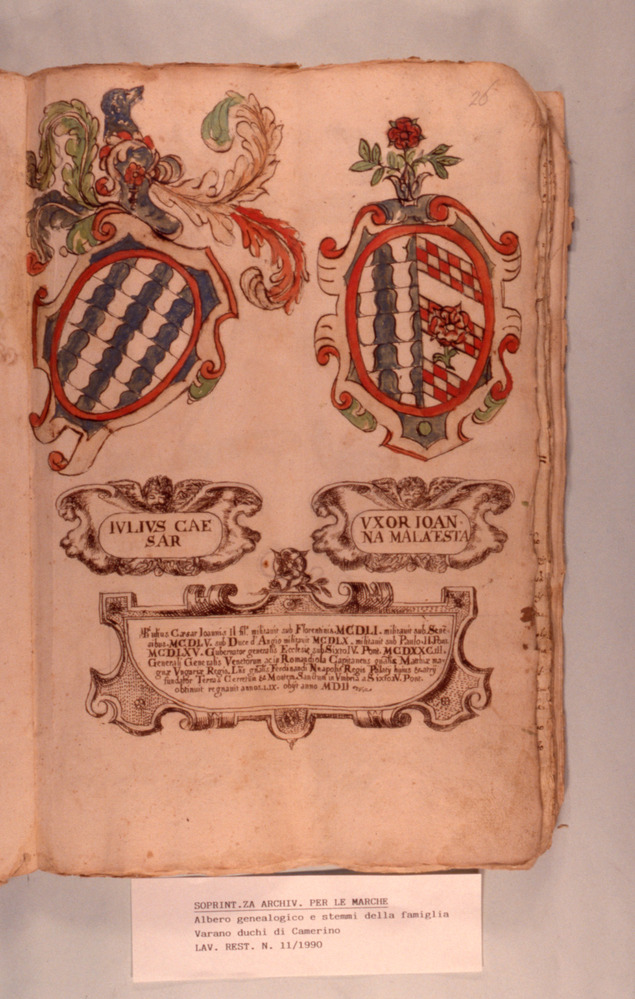 26
IVLIVS CAE
SAR
VXOR IOAN·
NA MALATESTA
Iulius Cæsar Joannis II fil. militauit sub Florentinis MCDLI. militauit sub Sene˜
sibus MCDLV. sub Duce d'Angio militauit MCDLX. militauit sub Paulo II Pont.
MCDLXV. Gubernator generalis Ecclesiæ sub Sixto IV. Pont.
Generalis Venetorum ac in Romandiola Capitaneus Mathiæ ma˜
gnæ Vngariæ Regis, Ferdinandi Neapolis Regis Palatij huius
fundator Terras Cerreti et Montem Sanctum in Vmbria a Sixto IV. Pont.
obtinuit regnauit annos LIX. obijt anno MDII
SOPRINT.ZA ARCHIV. PER LE MARCHE
Albero genealogico e stemmi della famiglia
Varano duchi di Camerino
LAV. REST. N. 11/1990